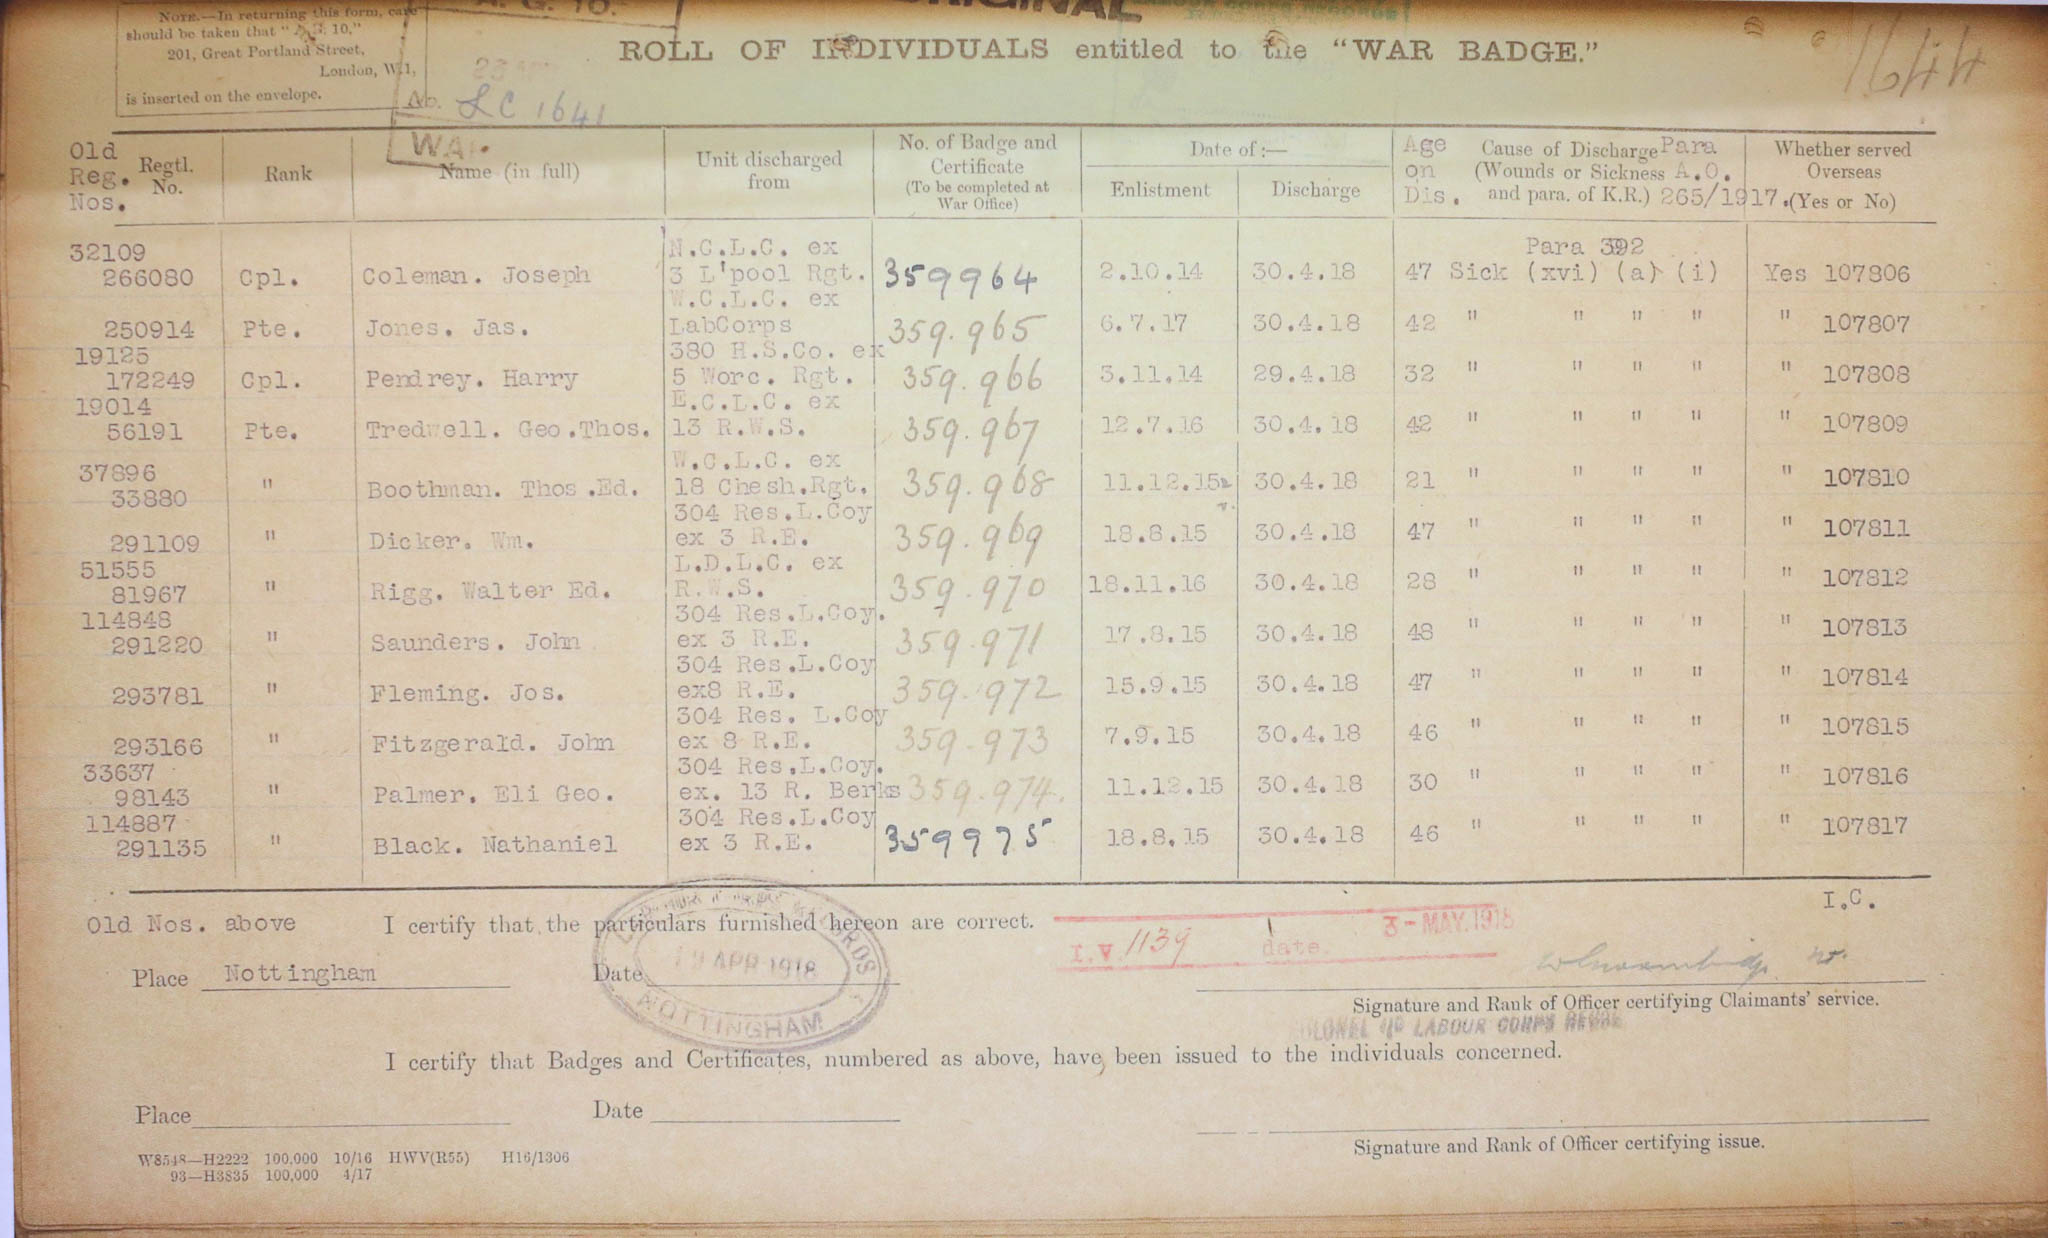 NOTE.—In returning this form, care
should be taken that "A.G. 10,"
201, Great Portland Street,
London, W.1,
is inserted on the envelope.
A. G. 10.
ORIGINAL
No. LC 1641
WAR
1644
ROLL OF INDIVIDUALS entitled to the "WAR BADGE."
Old Reg. Nos. Regtl. No. Rank Name (in full) Unit discharged from No. of Badge and Certificate (To be completed at War Office) Date of :— Enlistment Discharge Age on Dis. Cause of Discharge (Wounds or Sickness and para. of K.R.) Para A.O. 265/1917. Whether served Overseas (Yes or No)
32109 N.C.L.C. ex Para 392
266080 Cpl. Coleman. Joseph 3 L'pool Rgt. 359964 2.10.14 30.4.18 47 Sick (xvi) (a) (i) Yes 107806
W.C.L.C. ex
250914 Pte. Jones. Jas. LabCorps 359.965 6.7.17 30.4.18 42 " " " " " 107807
19125 380 H.S.Co. ex
172249 Cpl. Pendrey. Harry 5 Worc. Rgt. 359.966 3.11.14 29.4.18 32 " " " " " 107808
19014 E.C.L.C. ex
56191 Pte. Tredwell. Geo.Thos. 13 R.W.S. 359.967 12.7.16 30.4.18 42 " " " " " 107809
37896 W.C.L.C. ex
33880 " Boothman. Thos.Ed. 18 Chesh.Rgt. 359.968 11.12.15 30.4.18 21 " " " " " 107810
304 Res.L.Coy
291109 " Dicker. Wm. ex 3 R.E. 359.969 18.8.15 30.4.18 47 " " " " " 107811
51555 L.D.L.C. ex
81967 " Rigg. Walter Ed. R.W.S. 359.970 18.11.16 30.4.18 28 " " " " " 107812
114848 304 Res.L.Coy.
291220 " Saunders. John ex 3 R.E. 359.971 17.8.15 30.4.18 48 " " " " " 107813
304 Res.L.Coy
293781 " Fleming. Jos. ex8 R.E. 359.972 15.9.15 30.4.18 47 " " " " " 107814
304 Res. L.Coy
293166 " Fitzgerald. John ex 8 R.E. 359.973 7.9.15 30.4.18 46 " " " " " 107815
33637 304 Res.L.Coy.
98143 " Palmer. Eli Geo. ex. 13 R. Berks 359.974. 11.12.15 30.4.18 30 " " " " " 107816
114887 304 Res.L.Coy
291135 " Black. Nathaniel ex 3 R.E. 359975 18.8.15 30.4.18 46 " " " " " 107817
I.C.
Old Nos. above I certify that the particulars furnished hereon are correct.
I.V. 1139 date. 3-MAY.1918
Place Nottingham Date 19 APR 1918
NOTTINGHAM
Signature and Rank of Officer certifying Claimants' service.
COLONEL LABOUR CORPS
I certify that Badges and Certificates, numbered as above, have been issued to the individuals concerned.
Place Date
Signature and Rank of Officer certifying issue.
W8548—H2222 100,000 10/16 HWV(R55) H16/1306
93—H3835 100,000 4/17